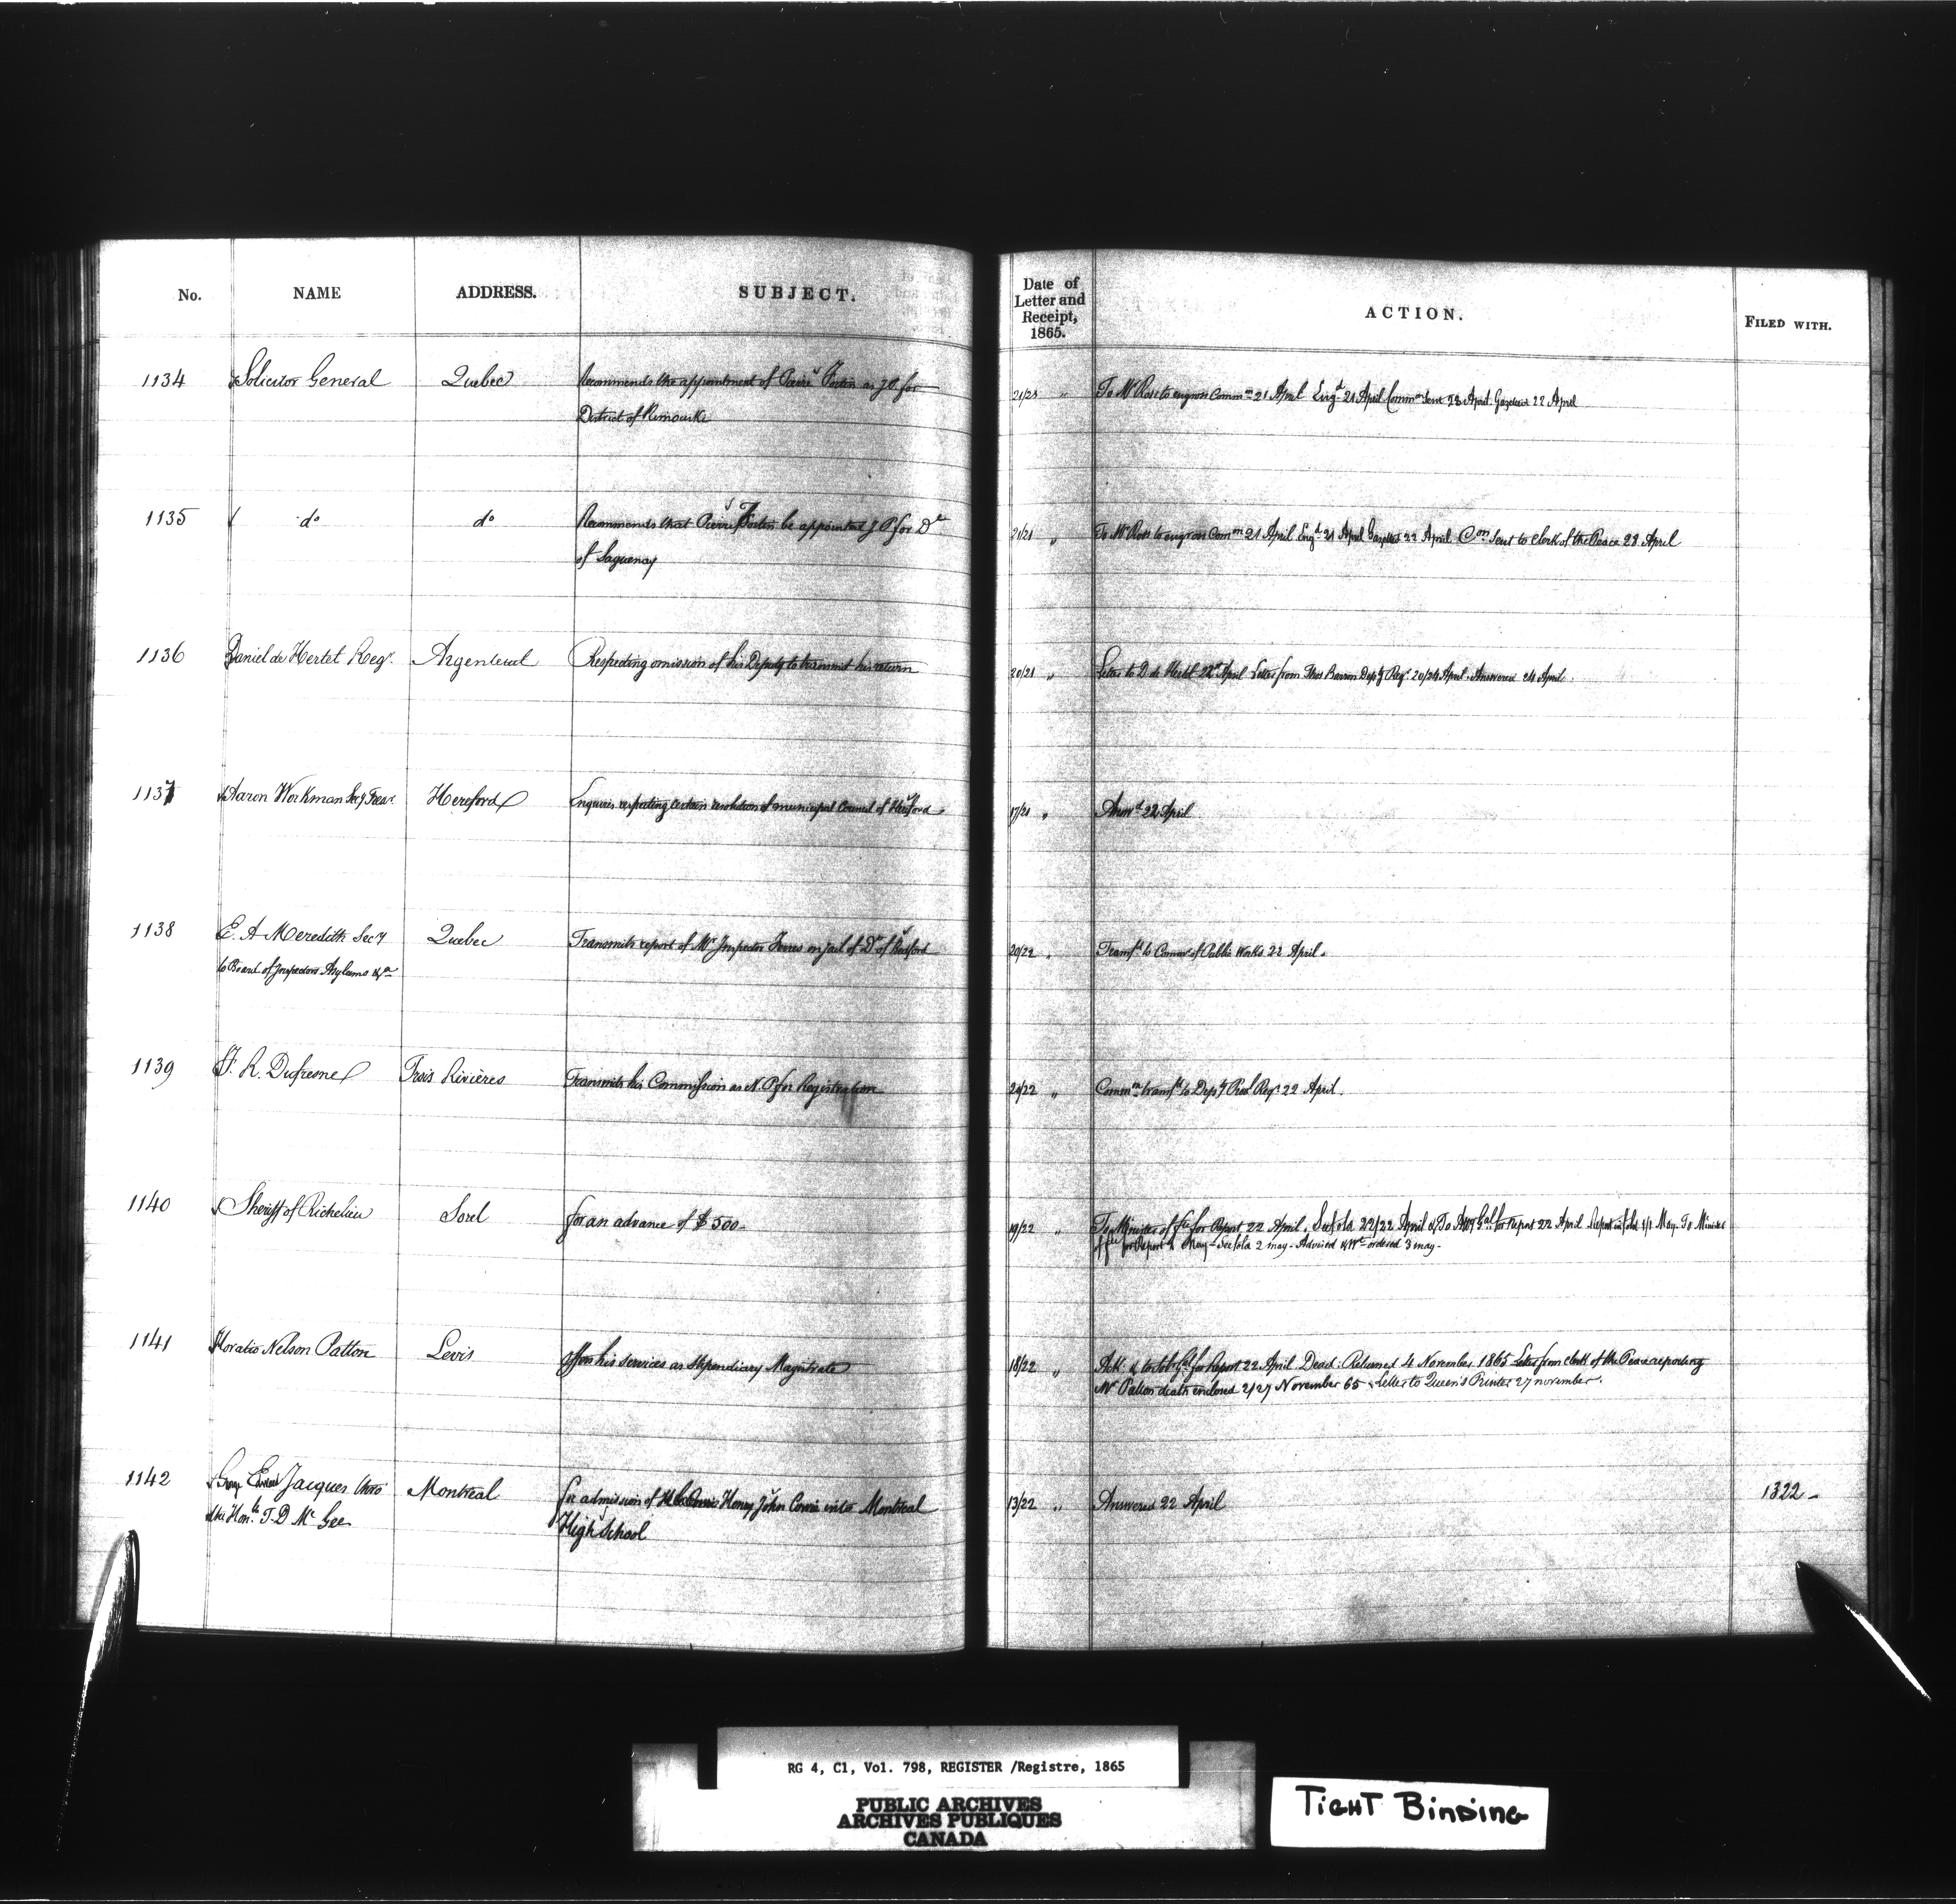 No. NAME ADDRESS. SUBJECT.
Date of Letter and Receipt, 1865. ACTION. FILED WITH.
1134 Solicitor General Quebec Recommends the appointment of Pierre Fortin as J P for
District of Rimouski
21/21 " To Mr Ross to engross Commn 21 April Engd 21 April Commn Sent 28 April Gazetted 22 April
1135 do do Recommends that Pierre Fortin be appointed J P for Dt
of Saguenay
21/21 " To Mr Ross to engross Comn 21 April Engd 21 April Gazetted 22 April Con Sent to Clerk of the Peace 28 April
1136 Daniel de Hertel Regr. Argenteuil Respecting omission of his Deputy to transmit his return
20/21 " Letter to D de Hertel 22d April Letter from Thos Barron Depy Regr. 20/24 April. Answered 24 April.
1137 Aaron Workman Secy Treasr Hereford Enquires respecting certain resolution of municipal Council of Hereford
17/21 " Answd 22 April
1138 E. A Meredith Secy Quebec Transmits report of Mr Inspector Ferres on jail of Dt of Bedford
to Board of Inspectors Asylums &ca
20/22 " Transfd to Commr of Public Works 22 April.
1139 F. R. Dufresne Trois Rivières Transmits his Commission as N. P for Registration
20/22 " Commn transfd to Depy Provl Regr 22 April.
1140 Sheriff of Richelieu Sorel for an advance of $500-
19/22 " To Minister of fce for Report 22 April. See fola 22/22 April & To Atty Gal for Report 22 April Report in fola 1/1 May. To Minister
of fce for Report 1 May - See fola 2 may - Advised & Wt ordered 3 may -
1141 Horatio Nelson Patton Levis Offers his services as Stipendiary Magistrate
18/22 " Ack: & to Sol Gal for Report 22 April Dead: Returned 4 November 1865 Letter from clerk of the Peace reporting
Mr Patton death enclosed 2/27 November 65 - Letter to Queen's Printer 27 november.
1142 George Edward Jacques thro Montreal for admission of Henry John Cowie into Montreal
the Honble T. D Mc Gee High School
13/22 " Answered 22 April 1322 -
RG 4, C1, Vol. 798, REGISTER /Registre, 1865
PUBLIC ARCHIVES
ARCHIVES PUBLIQUES
CANADA
TIGHT BINDING